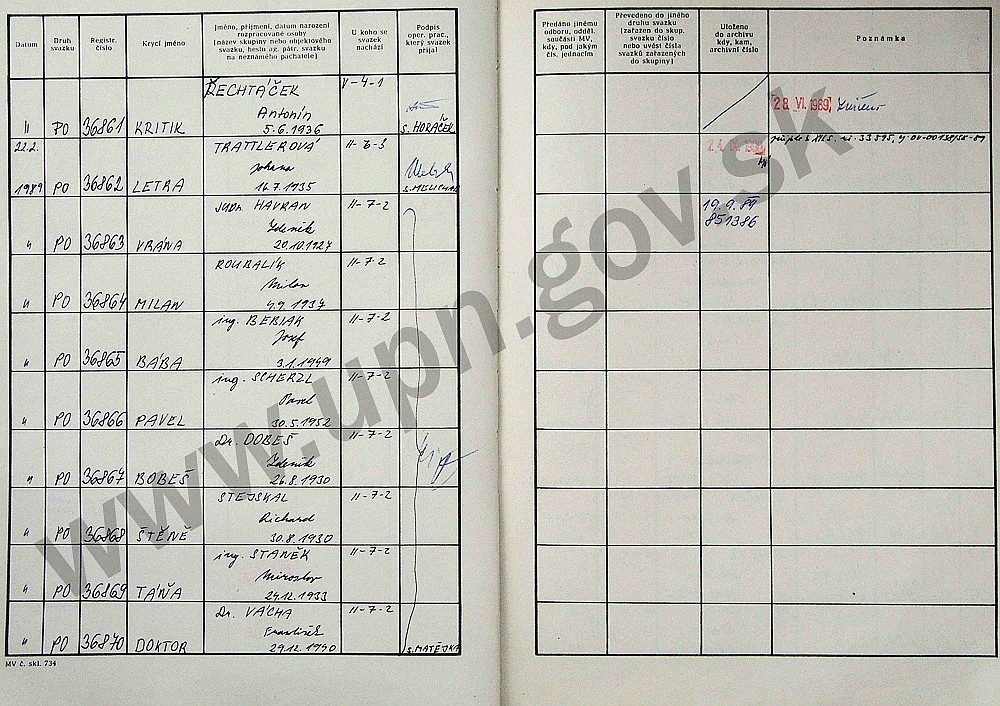 Datum
Druh svazku
Registr. číslo
Krycí jméno
Jméno, příjmení, datum narození
rozpracované osoby
(název skupiny nebo objektového
svazku, heslo ag. pátr. svazku
na neznámého pachatele)
U koho se svazek nachází
Podpis oper. prac., který svazek přijal
Předáno jinému
odboru, odděl.
součásti MV,
kdy, pod jakým
čís. jednacím
Převedeno do jiného
druhu svazku
(zařazen do skup.
svazku číslo
nebo uvést čísla
svazků zařazených
do skupiny)
Uloženo
do archivu
kdy, kam,
archivní číslo
Poznámka
ŘECHTÁČEK V-4-1
Antonín
" PO 36861 KRITIK 5.6.1936 s. HORÁČEK
28. VI. 1989
22.2. TRATTLEROVÁ II-6-3
Johana
1989 PO 36862 LETRA 16.7.1935 s. MELICHAR
JUDr. HAVRAN II-7-2
Zdeněk
" PO 36863 VRÁNA 20.10.1927
19.9.89
851386
ROUBALÍK II-7-2
Milan
" PO 36864 MILAN 4.9.1937
ing. BEBIAK II-7-2
Josef
" PO 36865 BÁBA 3.1.1949
ing. SCHERZL II-7-2
Pavel
" PO 36866 PAVEL 30.5.1952
Dr. DOBEŠ II-7-2
Zdeněk
" PO 36867 BOBEŠ 26.8.1930
STEJSKAL II-7-2
Richard
" PO 36868 ŠTĚNĚ 30.8.1930
ing. STANĚK II-7-2
Miroslav
" PO 36869 TÁŇA 24.12.1933
Dr. VÁCHA II-7-2
František
" PO 36870 DOKTOR s. MATĚJKA
MV č. skl. 734
www.upn.gov.sk